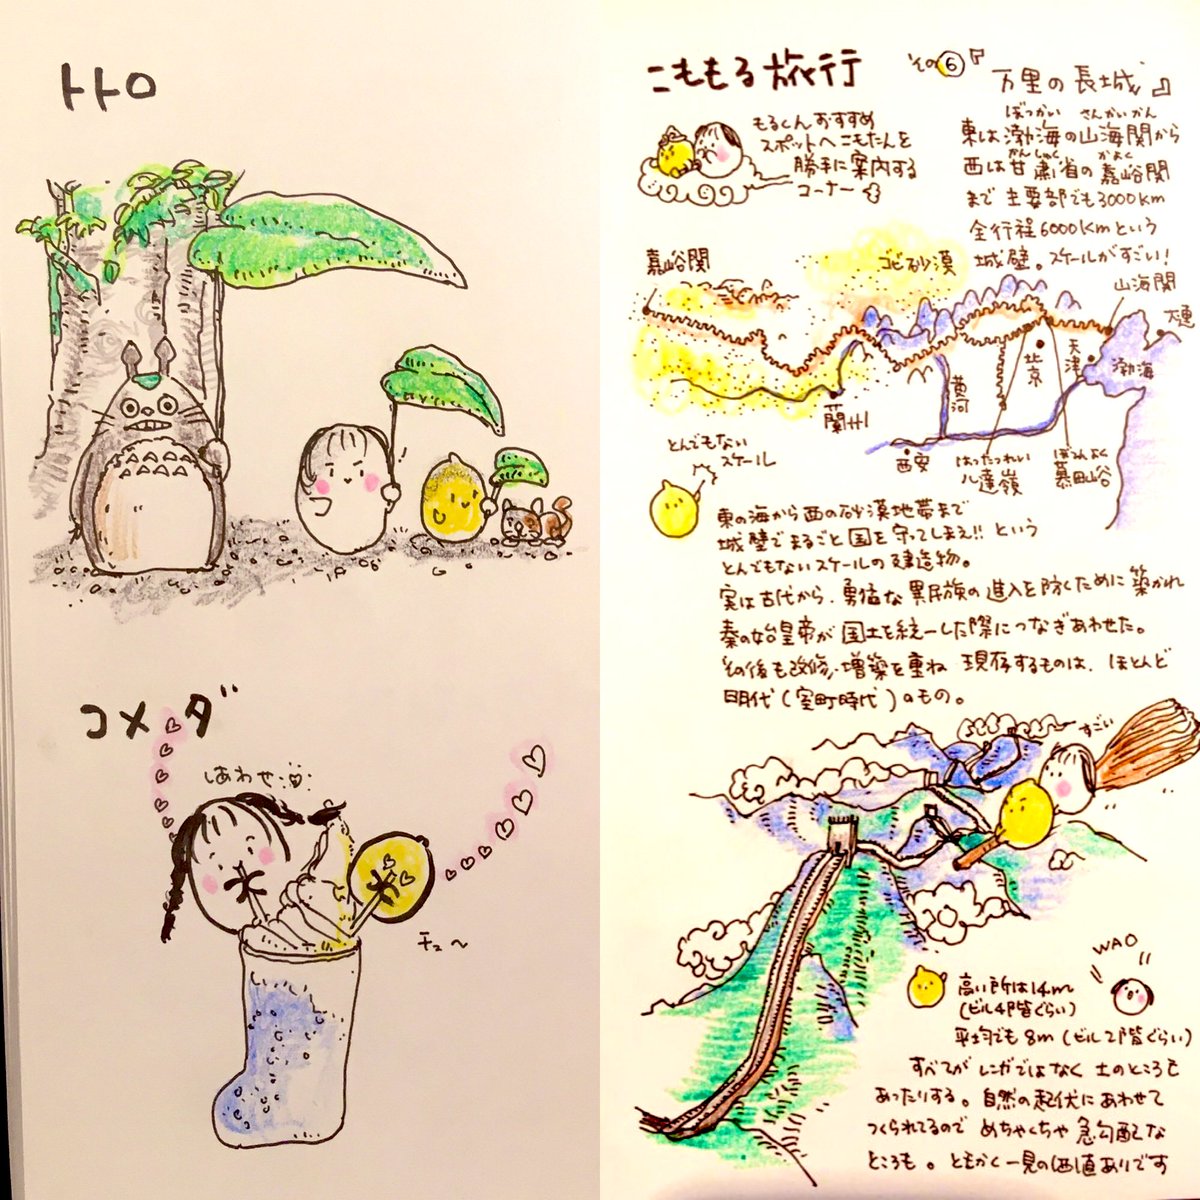 トトロ
コメダ
しあわせ
チュ〜
こももる旅行
その⑥『万里の長城』
もるくんおすすめ
スポットへこもたんを
勝手に案内する
コーナー
ぼっかい さんかいかん
東は渤海の山海関から
かんしゅく かよく
西は甘粛省の嘉峪関
まで 主要部でも3000km
全行程6000kmという
城壁。スケールがすごい!
嘉峪関
ゴビ砂漠
山海関
大連
渤海
天津
北京
黄河
蘭州
西安
はったつれい
八達嶺
ぼでんよく
慕田峪
とんでもない
スケール
東の海から西の砂漠地帯まで
城壁でまるごと国を守ってしまえ!! という
とんでもないスケールの建造物。
実は古代から、勇猛な異民族の進入を防ぐために築かれ
秦の始皇帝が国土を統一した際につなぎあわせた。
その後も改修、増築を重ね 現存するものは、ほとんど
明代(室町時代)のもの。
すごい
WAO
高い所は14m
(ビル4階ぐらい)
平均でも8m(ビル2階ぐらい)
すべてがレンガではなく 土のところも
あったりする。自然の起伏にあわせて
つくられてるので めちゃくちゃ急勾配な
ところも。ともかく一見の価値ありです